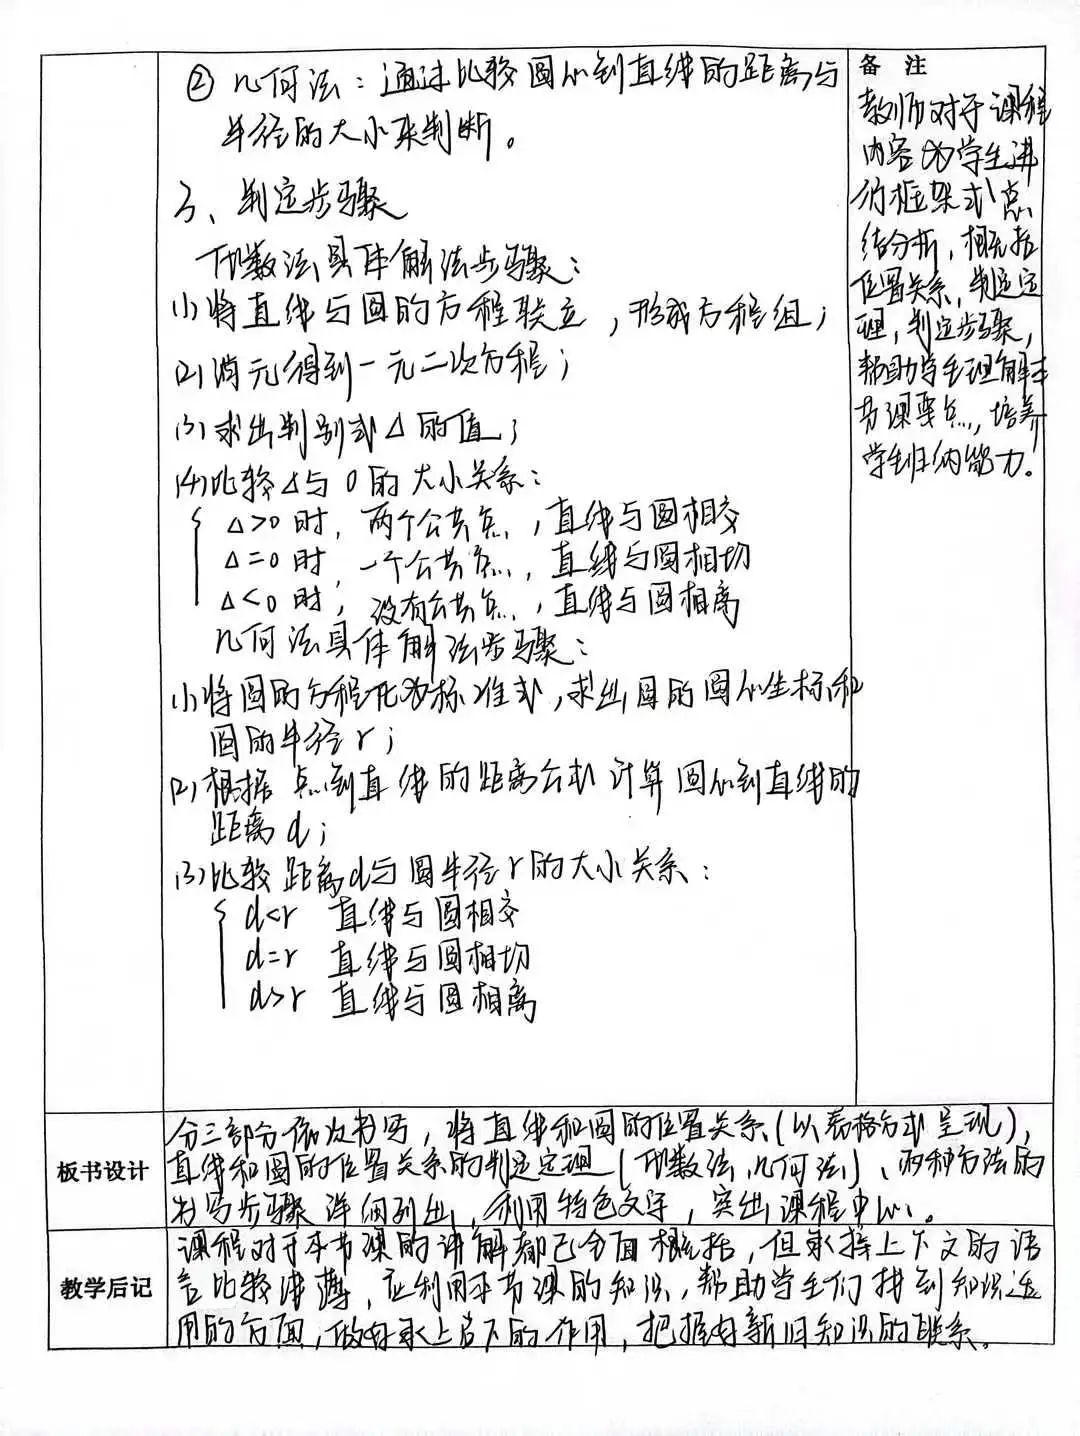 ②几何法：通过比较圆心到直线的距离与
半径的大小来判断。
3、判定步骤
代数法具体解法步骤：
(1)将直线与圆的方程联立，形成方程组；
(2)消元得到一元二次方程；
(3)求出判别式△的值；
(4)比较△与0的大小关系：
△>0时，两个公共点，直线与圆相交
△=0时，一个公共点，直线与圆相切
△<0时，没有公共点，直线与圆相离
几何法具体解法步骤：
(1)将圆的方程化为标准式，求出圆的圆心坐标和
圆的半径r；
(2)根据点到直线的距离公式计算圆心到直线的
距离d；
(3)比较距离d与圆半径r的大小关系：
d<r 直线与圆相交
d=r 直线与圆相切
d>r 直线与圆相离
备 注
教师对于课程
内容为学生进
行框架式总
结分析，概括
位置关系，判定定
理，判定步骤，
帮助学生理解本
节课要点，培养
学生归纳能力。
板书设计
分三部分依次书写，将直线和圆的位置关系(以表格方式呈现)，
直线和圆的位置关系的判定定理(代数法，几何法)、两种方法的
书写步骤详细列出，利用特色文字，突出课程中心。
教学后记
课程对于本节课的讲解都已全面概括，但承接上下文的语
言比较薄，应利用本节课的知识，帮助学生们找到知识适
用的方面，做好承上启下的作用，把握好新旧知识的联系。